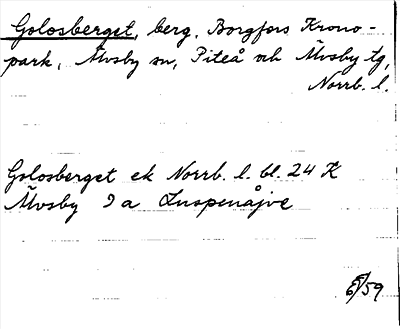 Golosberget, berg, Borgfors Krono-
park, Älvsby sn, Piteå och Älvsby tg,
Norrb. l.
Golosberget ek Norrb. l. bl. 24 K
Älvsby 9 a Luspenåjve
6/5 59